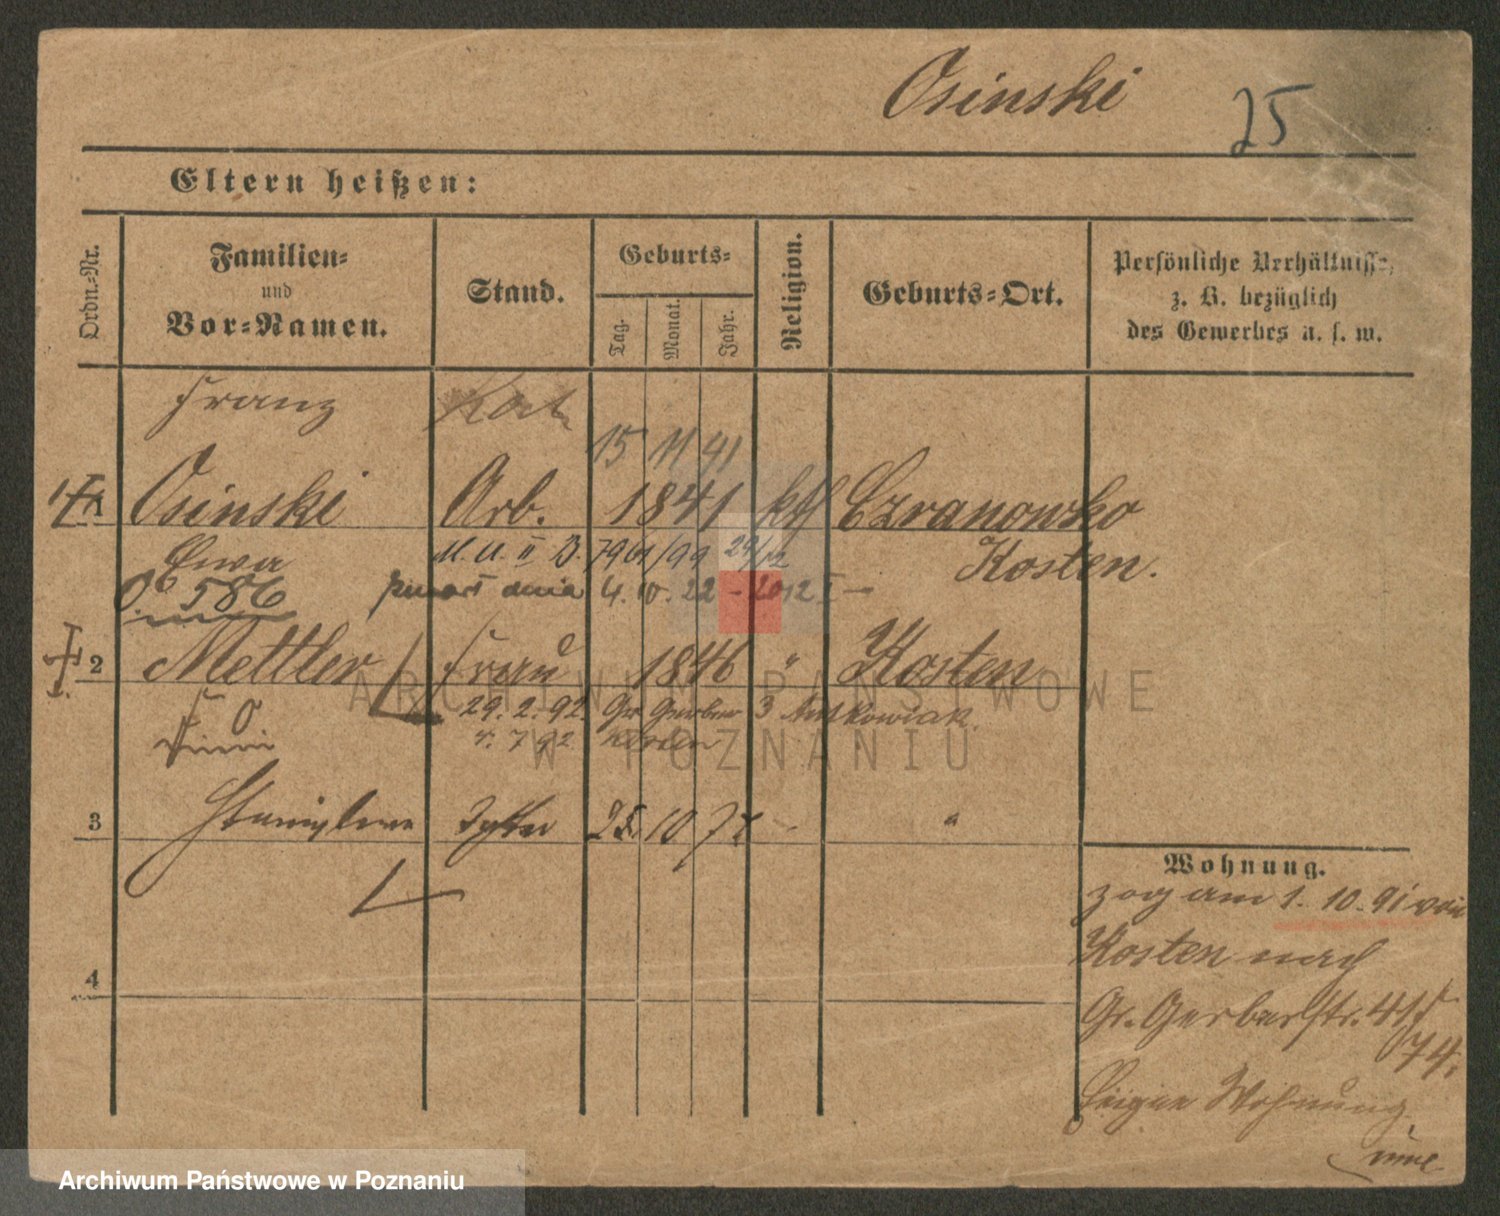 Osinski
25
Eltern heißen:
Ordn.-Nr.
Familien-
und
Vor-Namen.
Stand.
Geburts-
Tag.
Monat.
Jahr.
Religion.
Geburts-Ort.
Persönliche Verhältnisse,
z. B. bezüglich
des Gewerbes u. s. w.
Franz
Kat
15 11 41
1
Osinski Arb. 1841 kth Czranowko
Kosten.
Ewa
M. U. II B. 7961/99 29/12
586
zmarł dnia 4. 10. 22
2 Mettler Frau 1846 " Kosten
29. 2. 92. Gr Gerber 3 Antkowiak
3 Tochter 25. 10 "
4
Wohnung.
zog am 1. 10. 91 von
Kosten nach
Gr. Gerberstr. 41
74.
Eigne Wohnung
ARCHIWUM PAŃSTWOWE
W POZNANIU
Archiwum Państwowe w Poznaniu